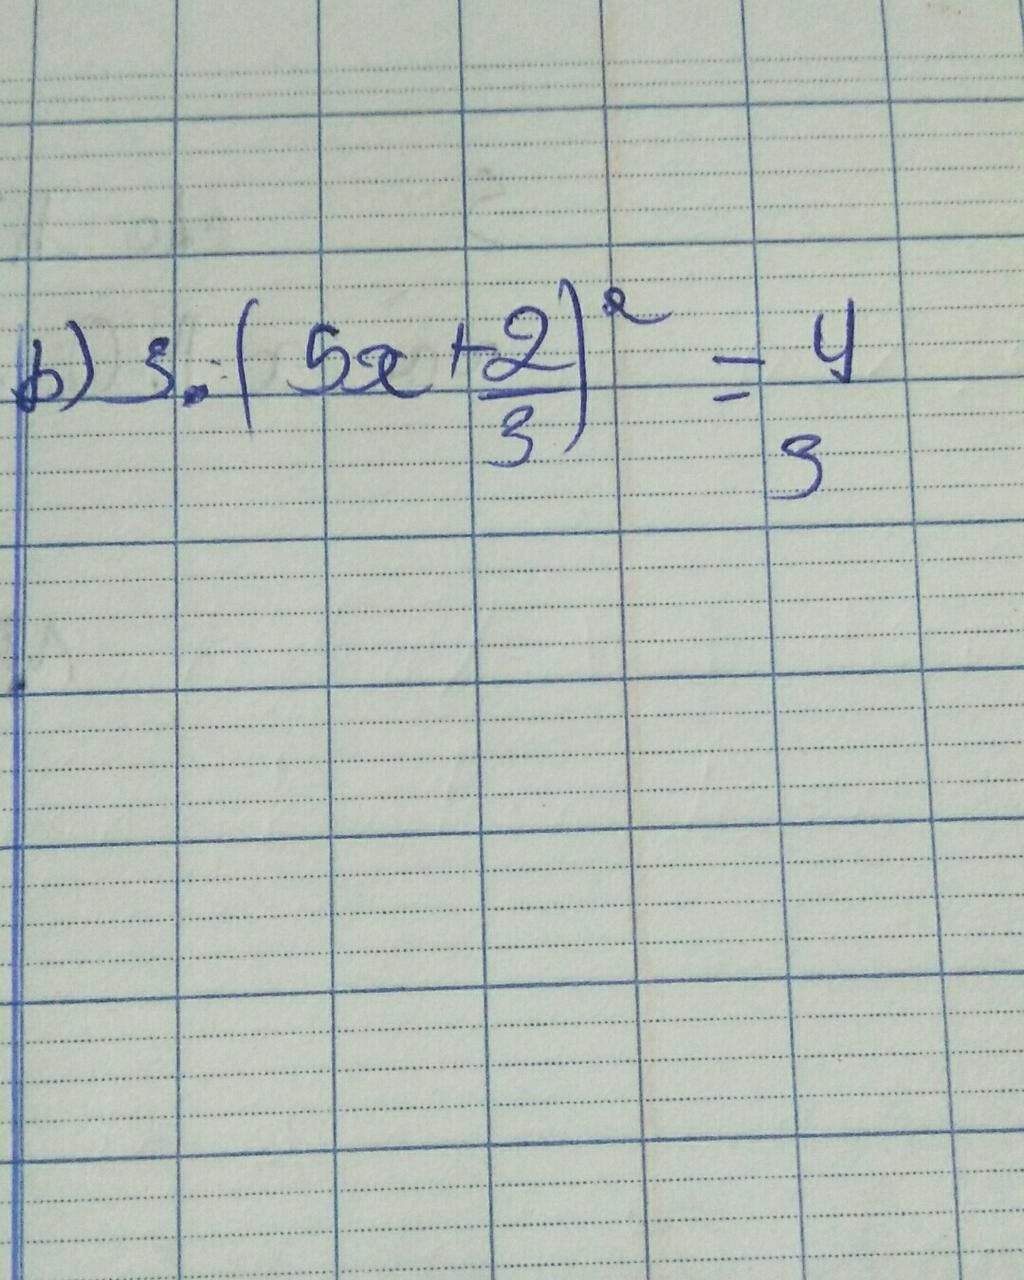 b) 3.(5x + 2/3)² = 4/3